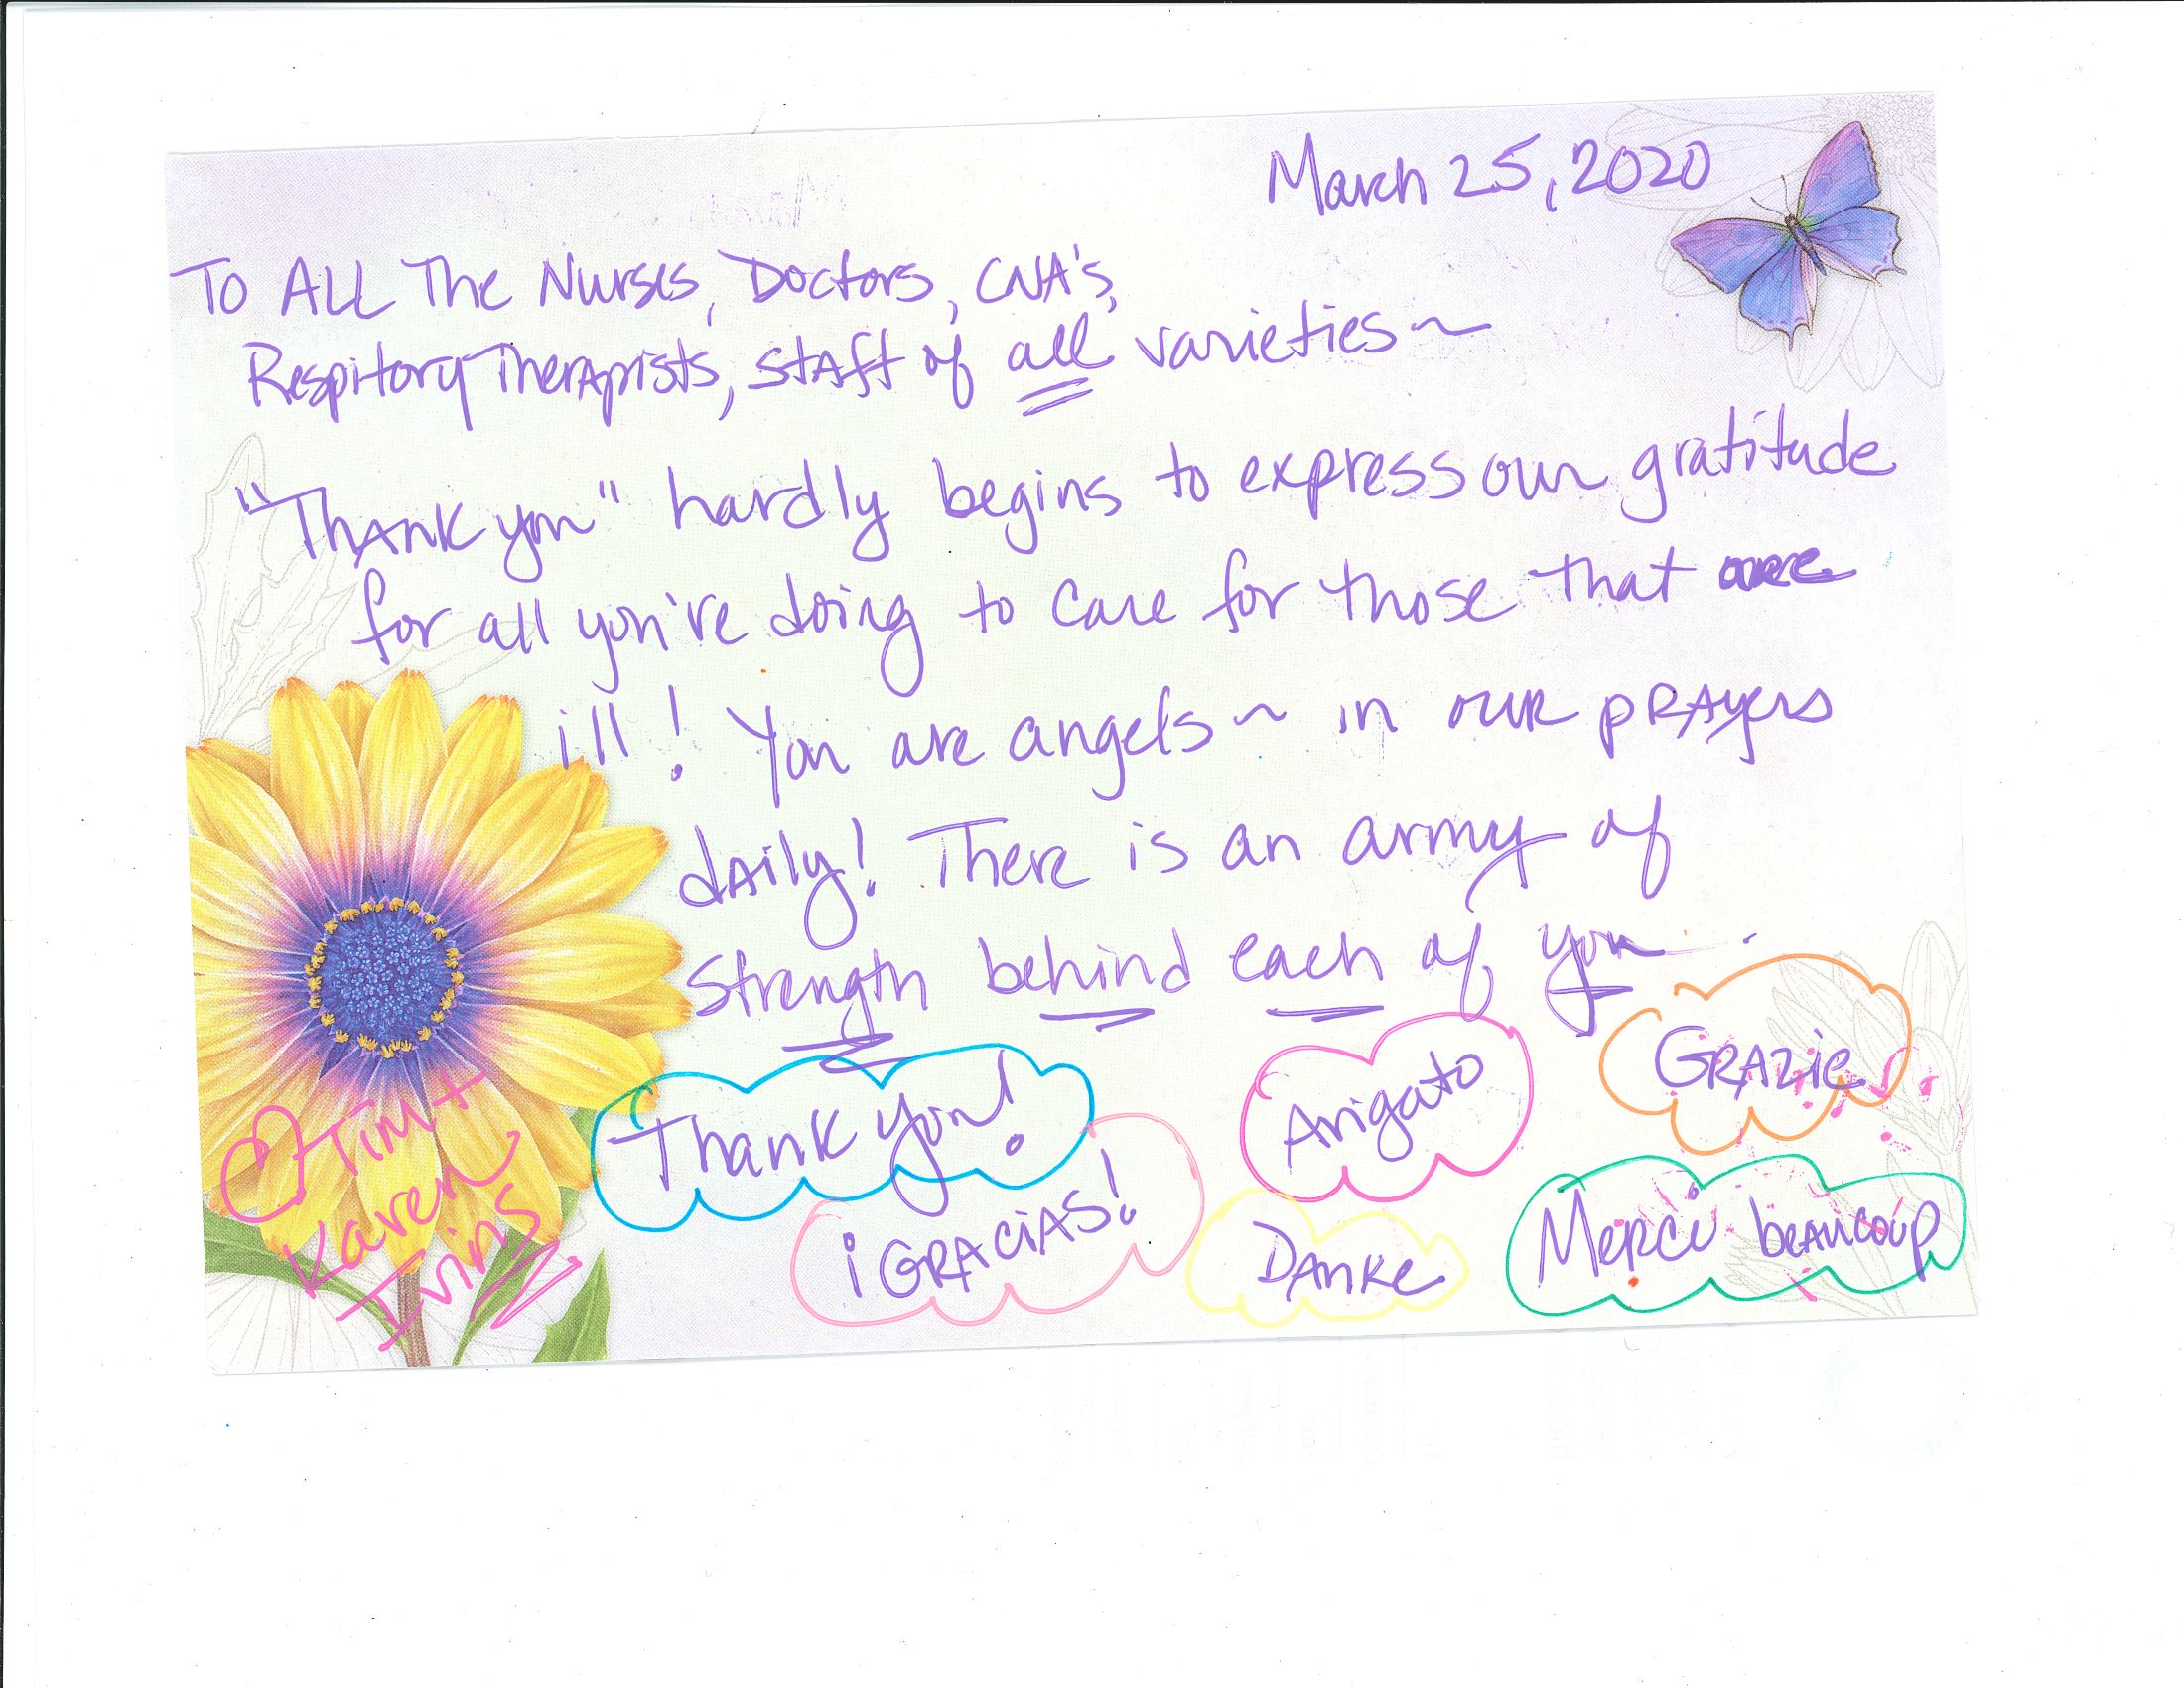 March 25, 2020
To ALL The Nurses, Doctors, CNA's,
Respitory Therapists, staff of all varieties ~
"Thank you" hardly begins to express our gratitude
for all you're doing to care for those that are
ill! You are angels ~ in our prayers
daily! There is an army of
strength behind each of you.
Thank you!
Arigato
Grazie
¡Gracias!
Danke
Merci beaucoup
♡ Tim +
Karen
Ivins